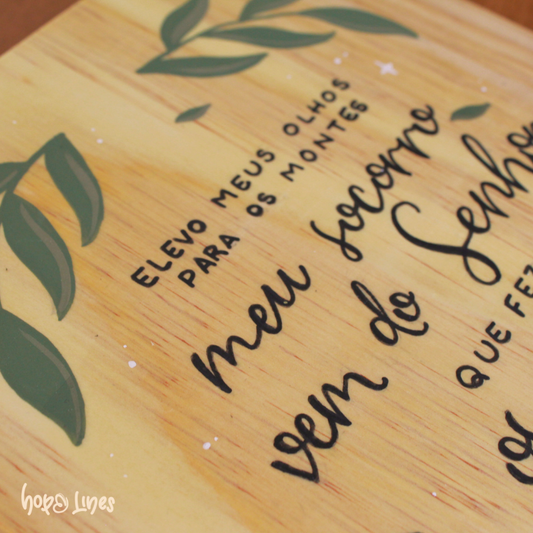 ELEVO MEUS OLHOS
PARA OS MONTES
meu socorro
vem do Senho
QUE FEZ
hope Lines